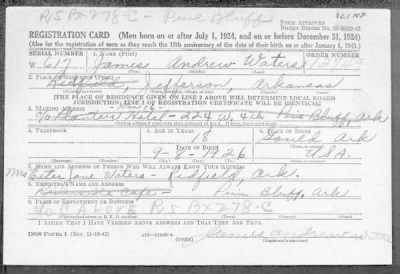 R5 BX 278-C - Pine Bluff
REGISTRATION CARD (Men born on or after July 1, 1924, and on or before December 31, 1924)
(Also for the registration of men as they reach the 18th anniversary of the date of their birth on or after January 1, 1943.)
SERIAL NUMBER 1. NAME (Print) ORDER NUMBER
W 617 James Andrew Waters
2. PLACE OF RESIDENCE (Print)
Redfield, Jefferson, Arkansas
[THE PLACE OF RESIDENCE GIVEN ON LINE 2 ABOVE WILL DETERMINE LOCAL BOARD
JURISDICTION; LINE 2 OF REGISTRATION CERTIFICATE WILL BE IDENTICAL]
3. MAILING ADDRESS
Planters Hotel - 204 W. 4th Pine Bluff, Ark
4. TELEPHONE 5. AGE IN YEARS 6. PLACE OF BIRTH
18 Gould Ark
DATE OF BIRTH
9-8-1926 U.S.A.
7. NAME AND ADDRESS OF PERSON WHO WILL ALWAYS KNOW YOUR ADDRESS
Mrs Jane Waters - Redfield, Ark.
8. EMPLOYER'S NAME AND ADDRESS
Cafe - Pine Bluff, Ark
9. PLACE OF EMPLOYMENT OR BUSINESS
R5 BX 278-C
I AFFIRM THAT I HAVE VERIFIED ABOVE ANSWERS AND THAT THEY ARE TRUE.
DSS Form 1 (Rev. 11-16-42) (OVER) James Andrew Waters